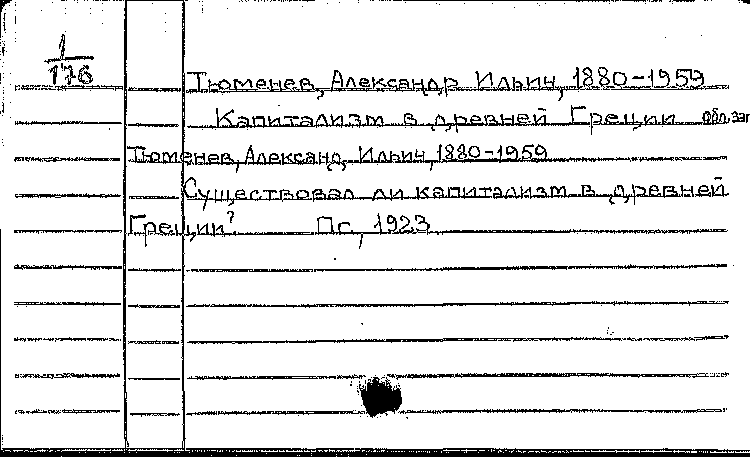 1
176
Тюменев, Александр Ильич, 1880-1959
Капитализм в древней Греции Обл. заг
Тюменев, Александ, Ильич, 1880-1959
Существовал ли капитализм в древней
Греции? Пг., 1923